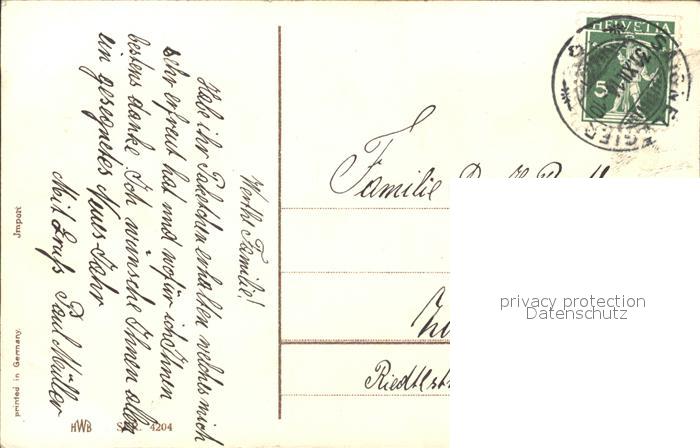 Werthe Familie!
Habe ihr Paketchen erhalten welches mich
sehr erfreut hat und wofür ich Ihnen
bestens danke. Ich wünsche Ihnen allen
ein gesegnetes Neues-Jahr
Mit Gruß Paul Müller
HELVETIA
5
Familie
Riedtlistr
privacy protection
Datenschutz
Printed in Germany. Import
HWB 4204